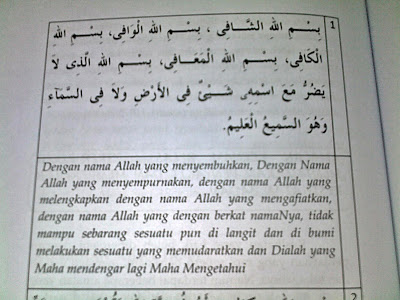 1
بِسْمِ اللهِ الشَّافِى ، بِسْمِ اللهِ الْوَافِى، بِسْمِ اللهِ
الْكَافِى، بِسْمِ اللهِ الْمُعَافِى، بِسْمِ اللهِ الَّذِى لاَ
يَضُرُّ مَعَ اسْمِهِ شَيْئٌ فِى الأَرْضِ وَلاَ فِى السَّمَآءِ
وَهُوَ السَّمِيعُ الْعَلِيمُ.
Dengan nama Allah yang menyembuhkan, Dengan Nama
Allah yang menyempurnakan, dengan nama Allah yang
melengkapkan dengan nama Allah yang mengafiatkan,
dengan nama Allah yang dengan berkat namaNya, tidak
mampu sebarang sesuatu pun di langit dan di bumi
melakukan sesuatu yang memudaratkan dan Dialah yang
Maha mendengar lagi Maha Mengetahui
2